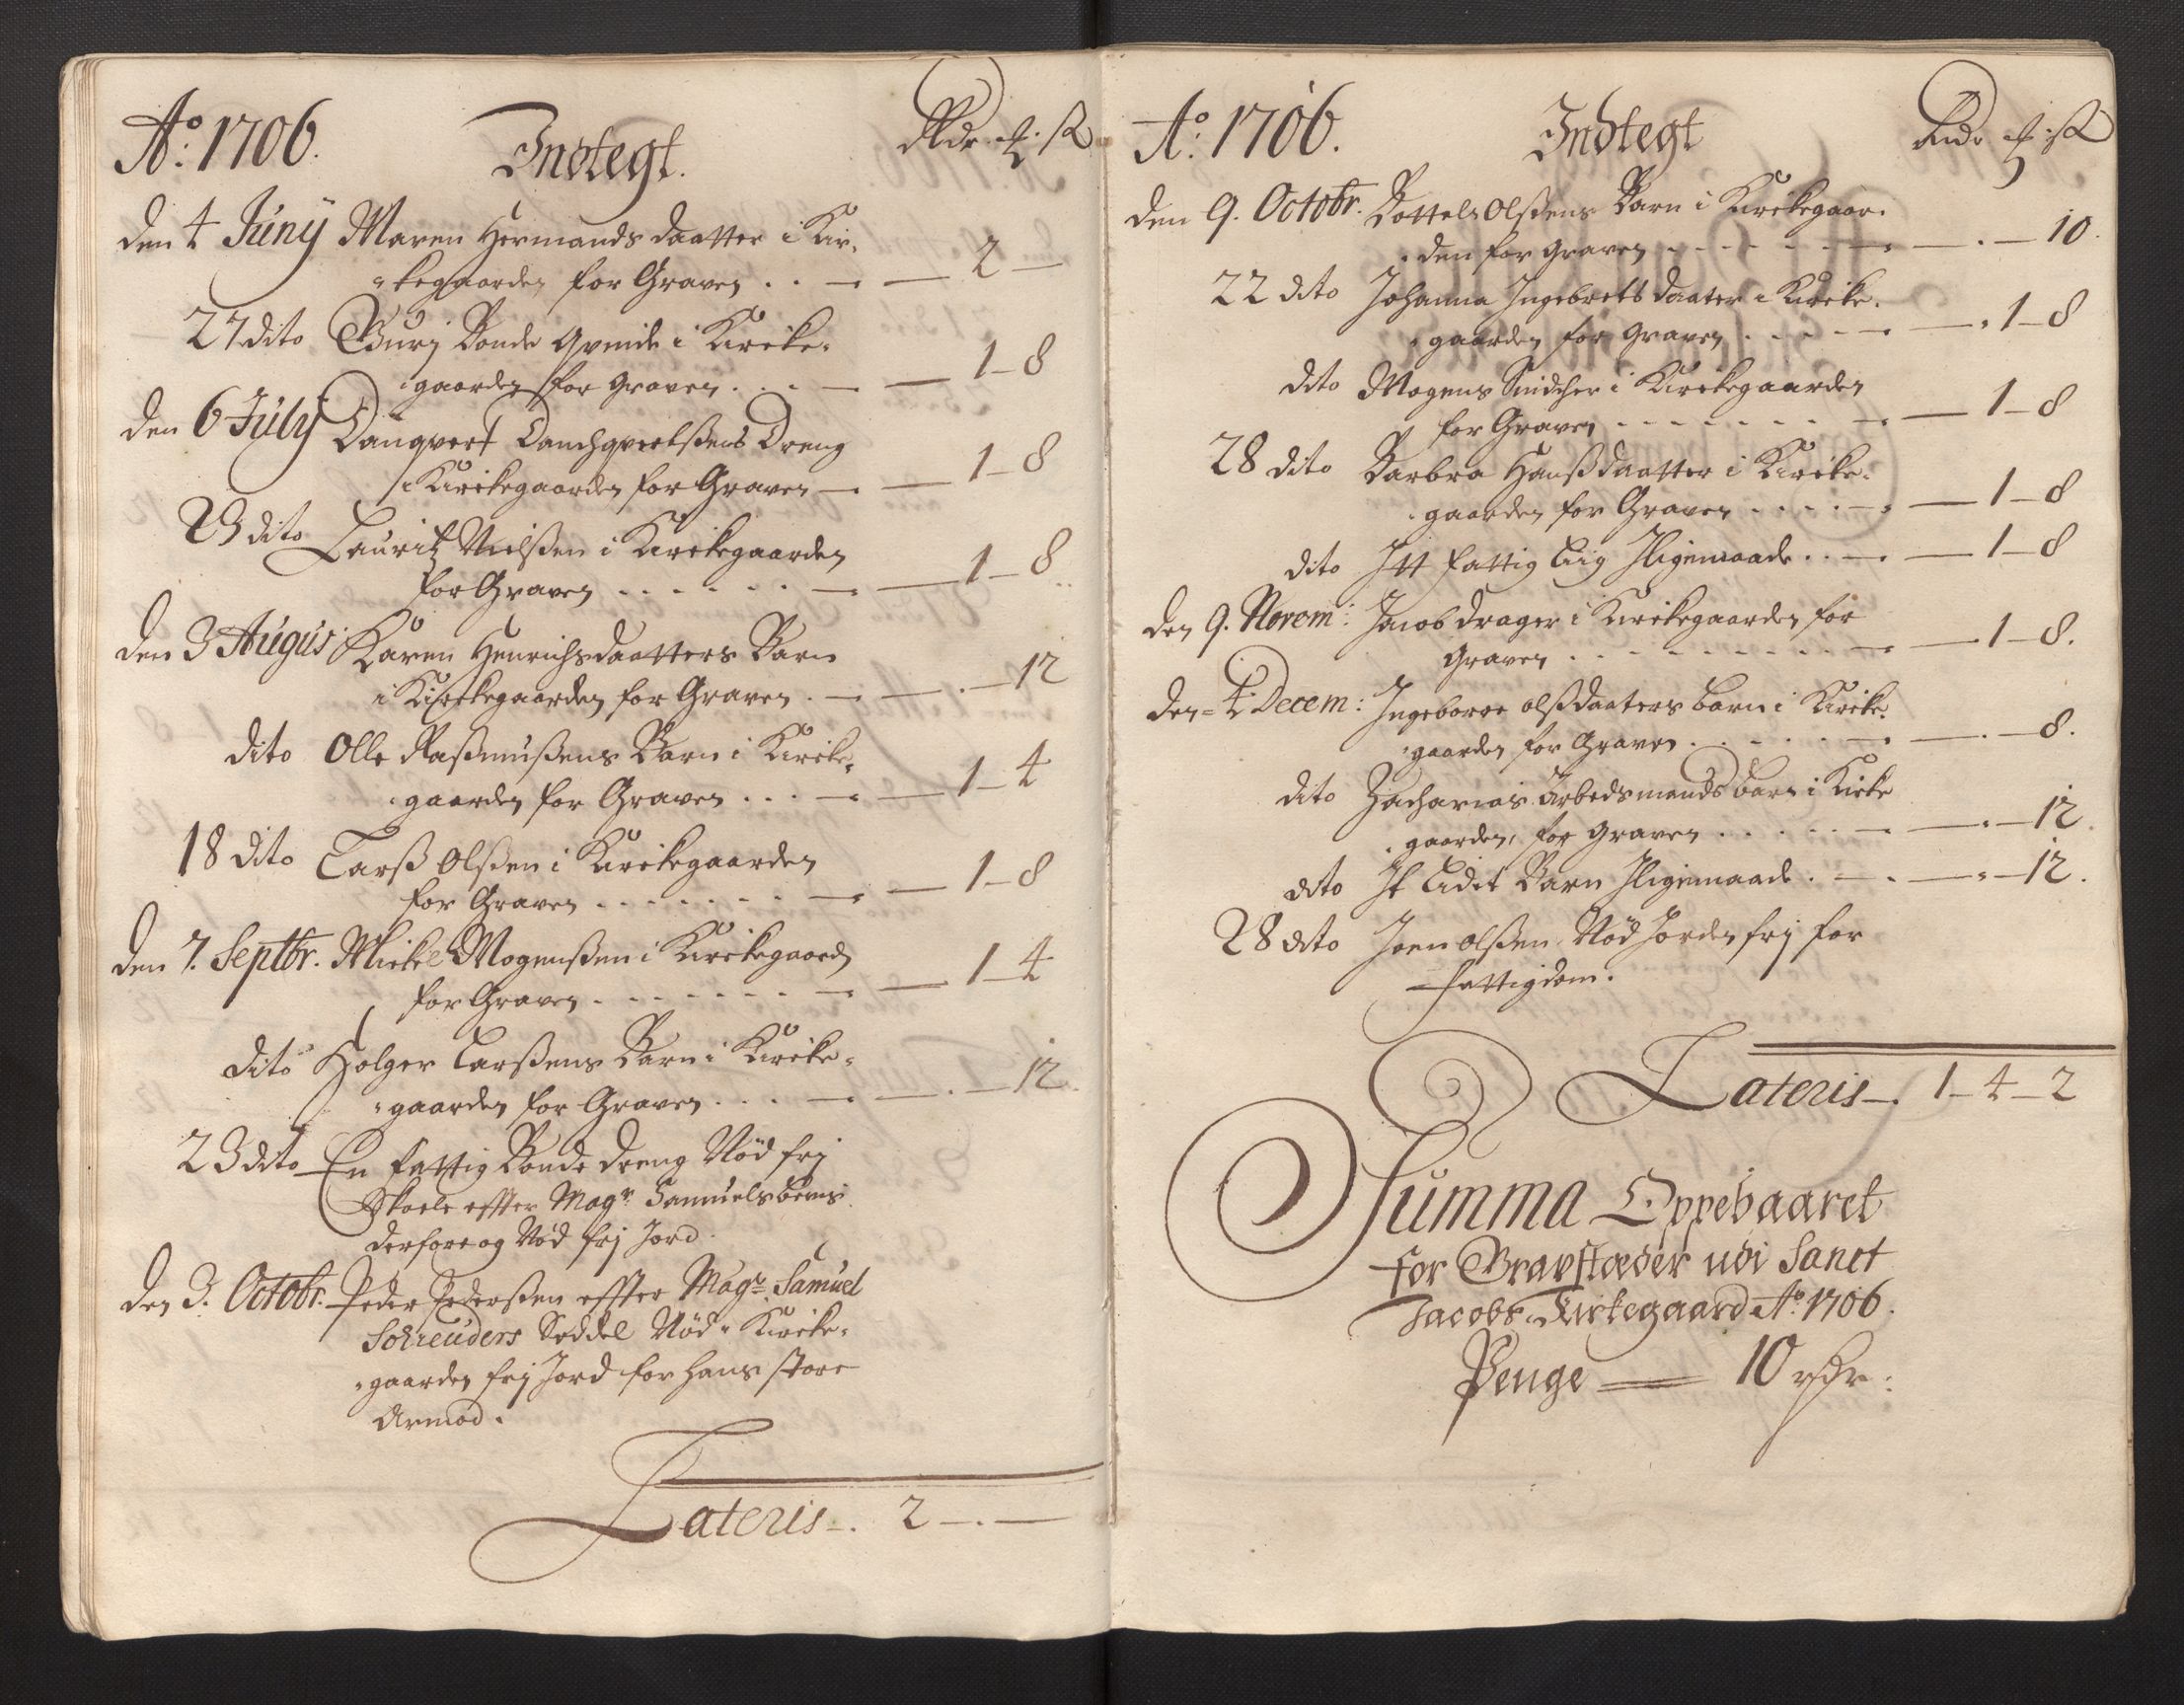 Ao: 1706.
Indtegt.
Rdr. ℳ. ß
den 4 Júnÿ Maren Hermands daatter i Kir-
kegaarden for Graven . . — — 2 —
27 dito Gurj Bonde qvinde i Kircke-
gaarden for Graven . . . — — 1 – 8
den 6 Júlÿ Danqvert Danchqvertßens Dreng
i Kirckegaarden for Graven — — 1 – 8
23 dito Lauritz Nielßen i Kirckegaarden
for Graven . . . . . . — — 1 – 8
den 3 Augús: Karen Henrichsdaatters Barn
i Kirckegaarden for Graven . — — . — 12
dito Olle Raßmußens Barn i Kircke-
gaarden for Graven . . . — — 1 – 4
18 dito Larß Olßen i Kirckegaarden
for Graven . . . . . . . — — 1 – 8
den 7. Septbr. Mickel Mogenßen i Kirckegaard
for Graven . . . . . . . — — 1 – 4
dito Holger Larßens Barn i Kircke-
gaarden for Graven . . . — — . — 12.
23 dito En fattig Bonde dreng Nød frj
Skoele effter Magr. Samuels beviis
derfore og Nød frj Jord.
den 3. Octobr. Peder Pederßen effter Magr. Samuel
Schreuders Seddel Nød i Kircke-
gaarden frj Jord for hans store
Armod.
Lateris —. 2 — . —
Ao: 1706.
Indtegt
Rdr. ℳ. ß
den 9. Octobr. Bottel Olßens Barn i Kirckegaar-
den for Graven . . . . . . — — . — 10.
22 dito Johanna Ingebrets daater i Kircke-
gaarden for Graven . . . . . — — 1 – 8
dito Mogens Snidcher i Kirckegaarden
for Graven . . . . . . . — — 1 – 8
28 dito Barbra Hanßdaatter i Kircke-
gaarden for Graven . . . . . — — 1 – 8
dito Itt fattig Liig Iligemaade . . — — 1 – 8
den 9. Novem: Jacob drager i Kirckegaarden for
Graven . . . . . . . . . . — — 1 – 8.
den 4 Decem: Ingeborre olßdaaters barn i Kircke-
gaarden for Graven . . . . . . — — . — 8.
dito Zacharias Arbedsmands barn i Kircke
gaarden, for Graven . . . . . — — . — 12.
dito It Lidit Barn Iligemaade . — . — . — 12.
28 dito Joen olßen Nød Jorden frj for
fattigdom.
Lateris —. 1 – 4 – 2
Summa Oppebaaret
for Gravstæder udi Sanct
Jacobs Kirkegaard Ao. 1706.
Penge — 10 rdr: